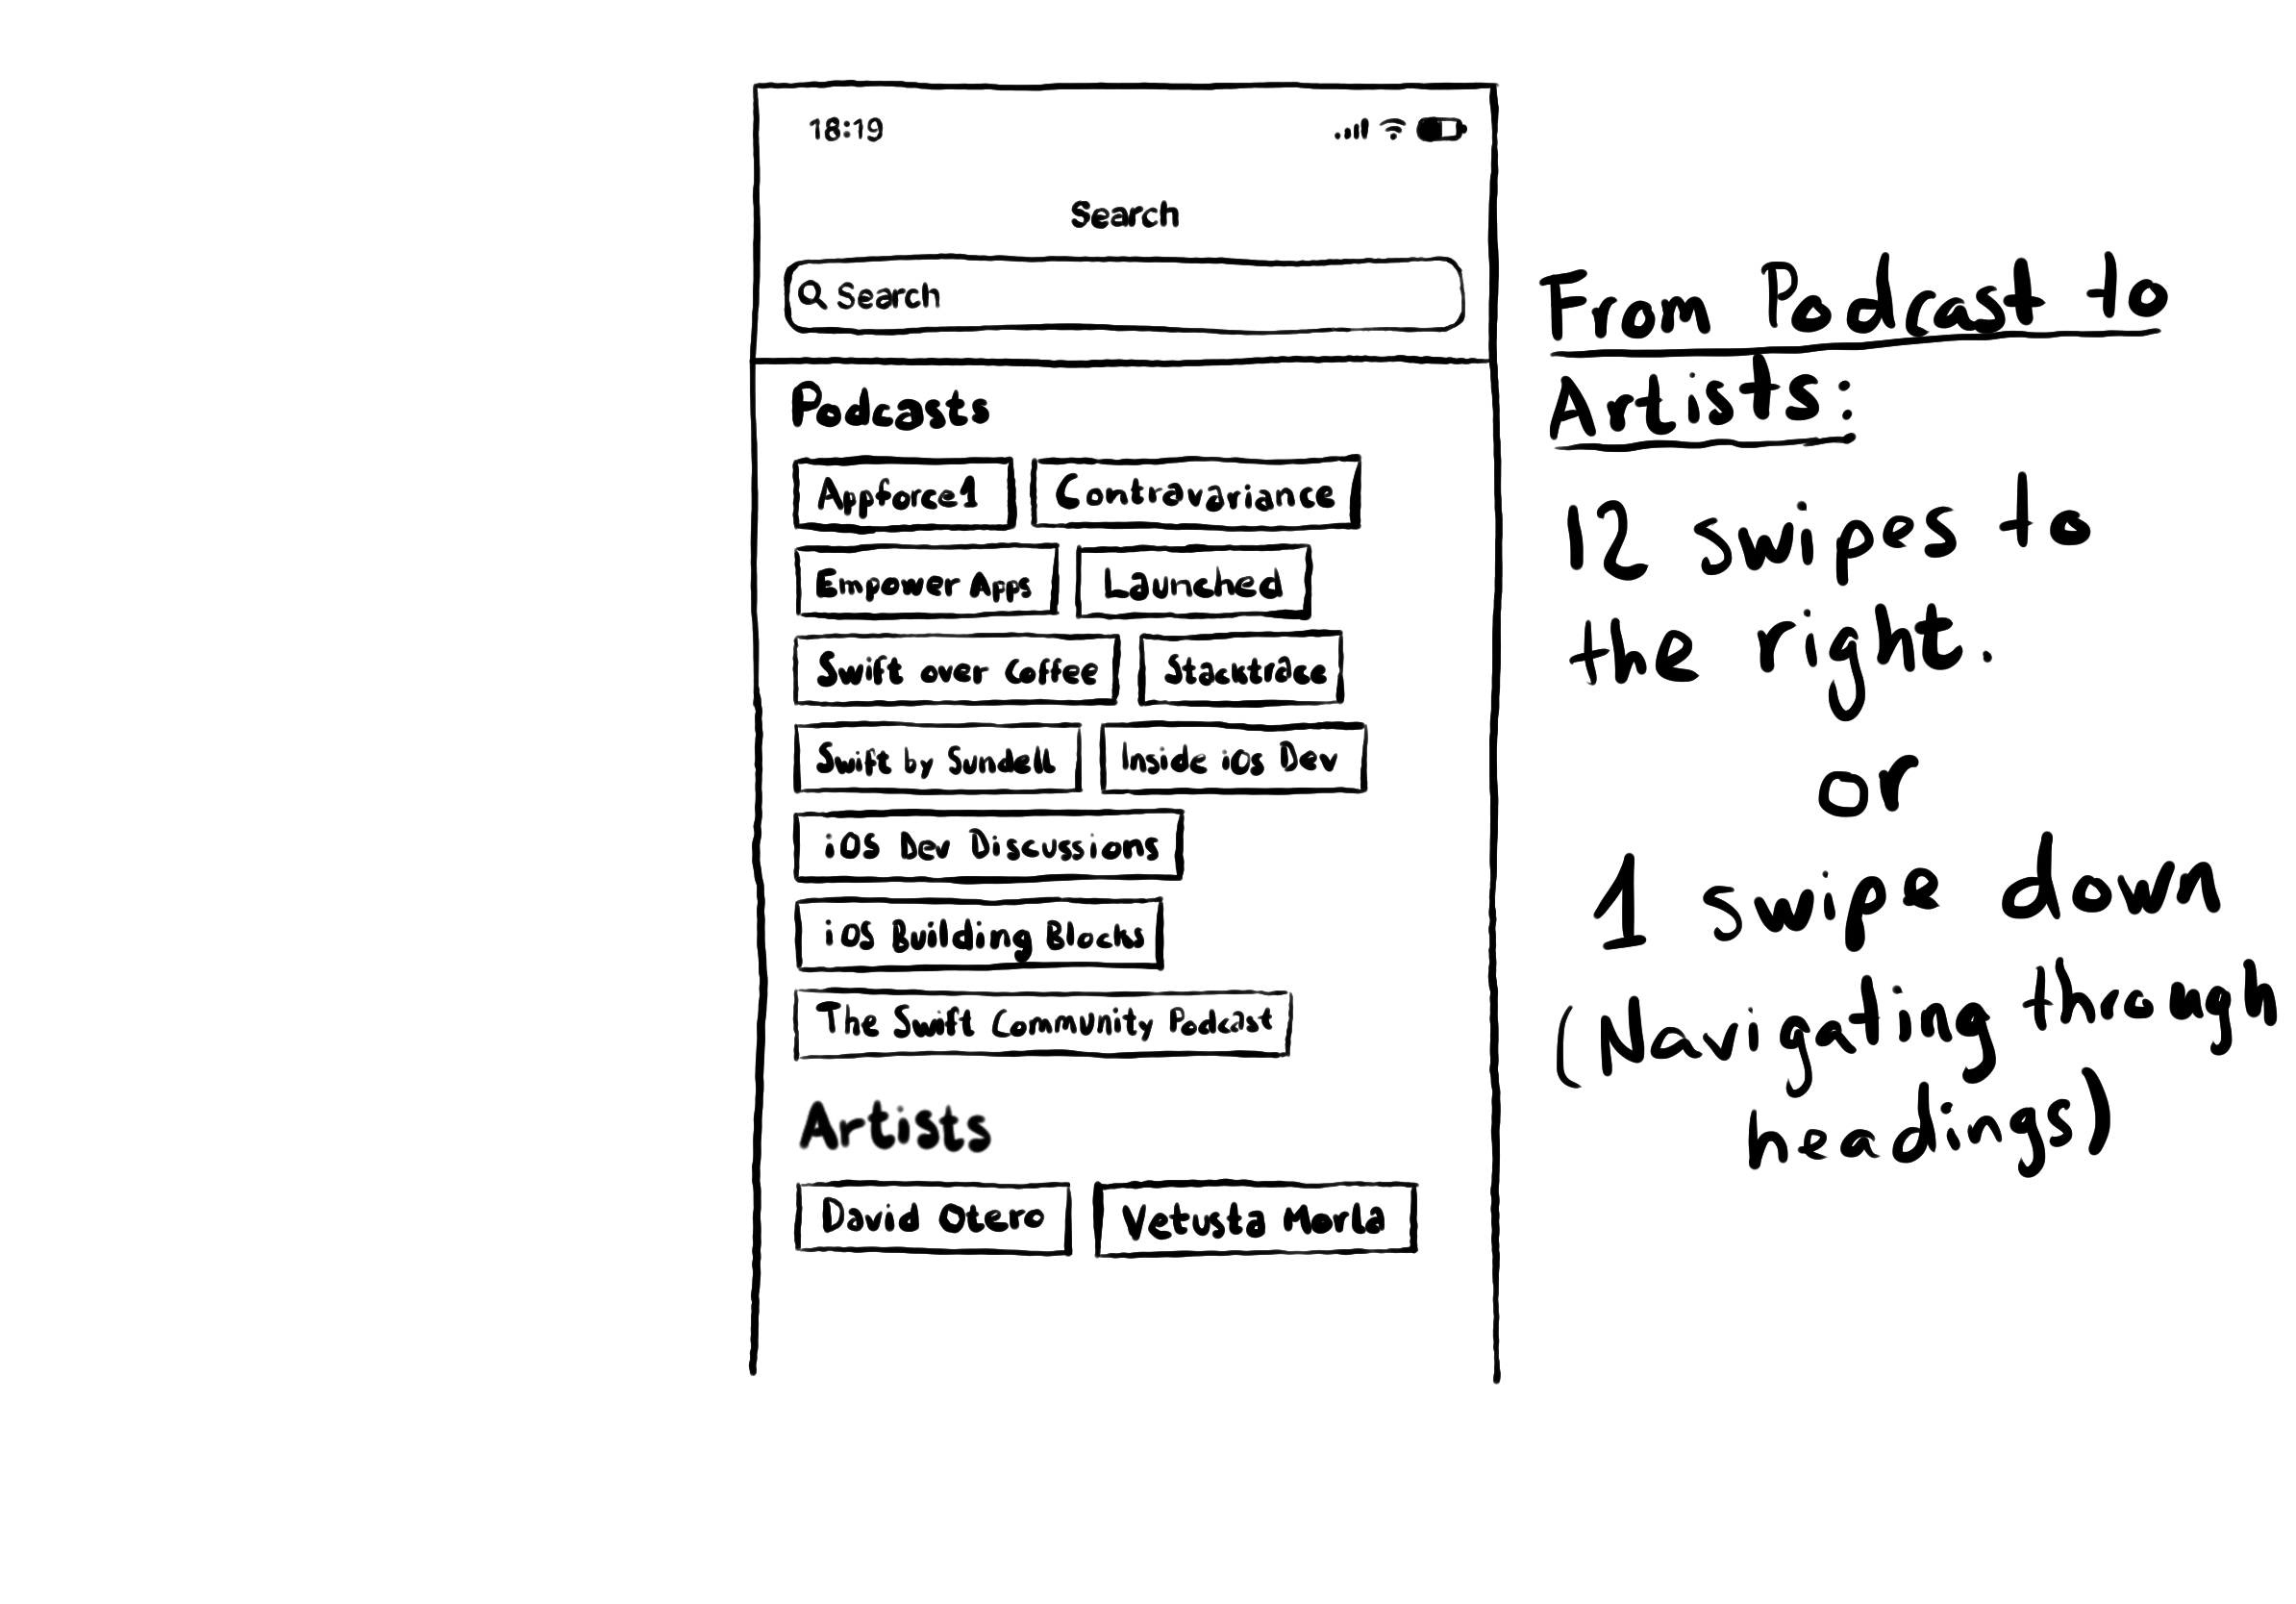 18:19
Search
Search
Podcasts
Appforce1 Contravariance
Empower Apps Launched
Swift over Coffee Stacktrace
Swift by Sundell Inside iOS Dev
iOS Dev Discussions
iOS Building Blocks
The Swift Community Podcast
Artists
David Otero Vetusta Morla
From Podcast to
Artists:
12 swipes to
the right.
or
1 swipe down
(Navigating through
headings)